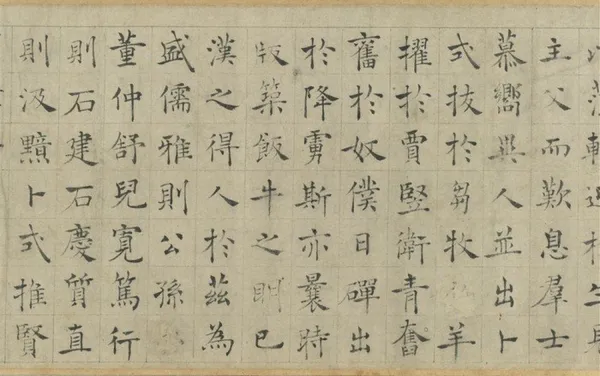 主父而歎息羣士
慕嚮異人並出卜
式拔於芻牧弘羊
擢於賈豎衛青奮
舊於奴僕日磾出
於降虜斯亦曩時
版築飯牛之明已
漢之得人於茲為
盛儒雅則公孫
董仲舒兒寬篤行
則石建石慶質直
則汲黯卜式推賢